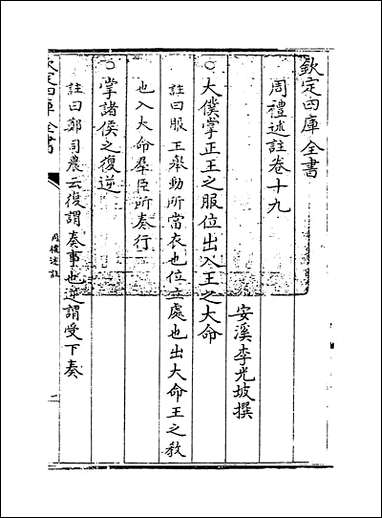 欽定四庫全書
周禮述註卷十九
安溪李光坡撰
大僕掌正王之服位出入王之大命
註曰服王舉動所當衣也位立處也出大命王之教
也入大命羣臣所奏行
掌諸侯之復逆
註曰鄭司農云復謂奏事也逆謂受下奏
欽定四庫全書
周禮述註
一